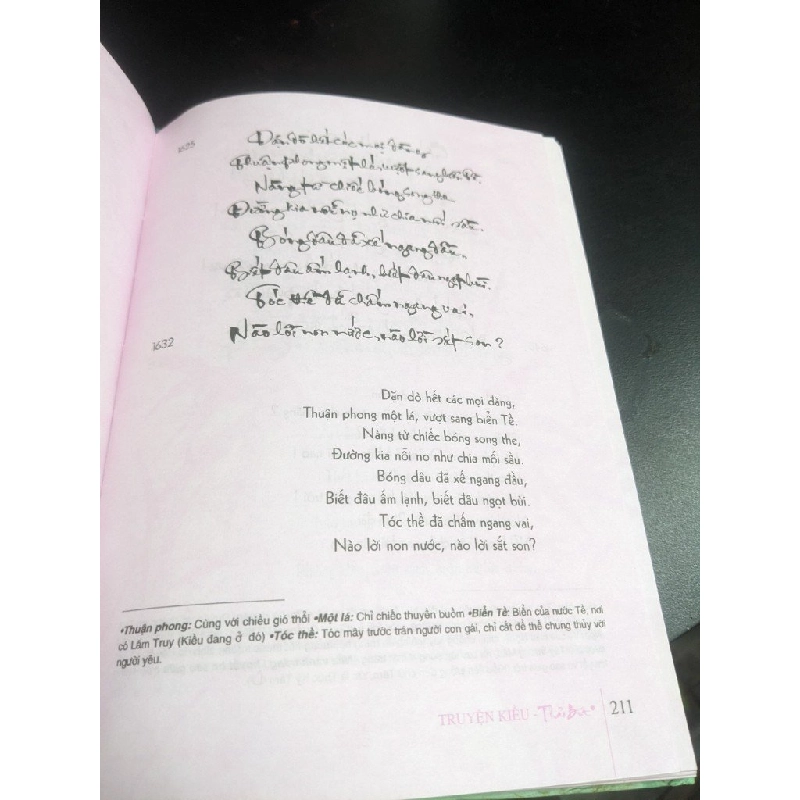 1625
Dặn dò hết các mọi đằng,
Thuận phong một lá, vượt sang biển Tề.
Nàng từ chiếc bóng song the,
Đường kia nỗi nọ như chia mối sầu.
Bóng dâu đã xế ngang đầu,
Biết đâu ấm lạnh, biết đâu ngọt bùi.
Tóc thề đã chấm ngang vai,
1632
Nào lời non nước, nào lời sắt son?
Dặn dò hết các mọi đằng,
Thuận phong một lá, vượt sang biển Tề.
Nàng từ chiếc bóng song the,
Đường kia nỗi nọ như chia mối sầu.
Bóng dâu đã xế ngang đầu,
Biết đâu ấm lạnh, biết đâu ngọt bùi.
Tóc thề đã chấm ngang vai,
Nào lời non nước, nào lời sắt son?
•Thuận phong: Cùng với chiều gió thổi •Một lá: Chỉ chiếc thuyền buồm •Biển Tề: Biển của nước Tề, nơi
có Lâm Truy (Kiều đang ở đó) •Tóc thề: Tóc mây trước trán người con gái, chỉ cắt để thề chung thủy với
người yêu.
TRUYỆN KIỀU - 211